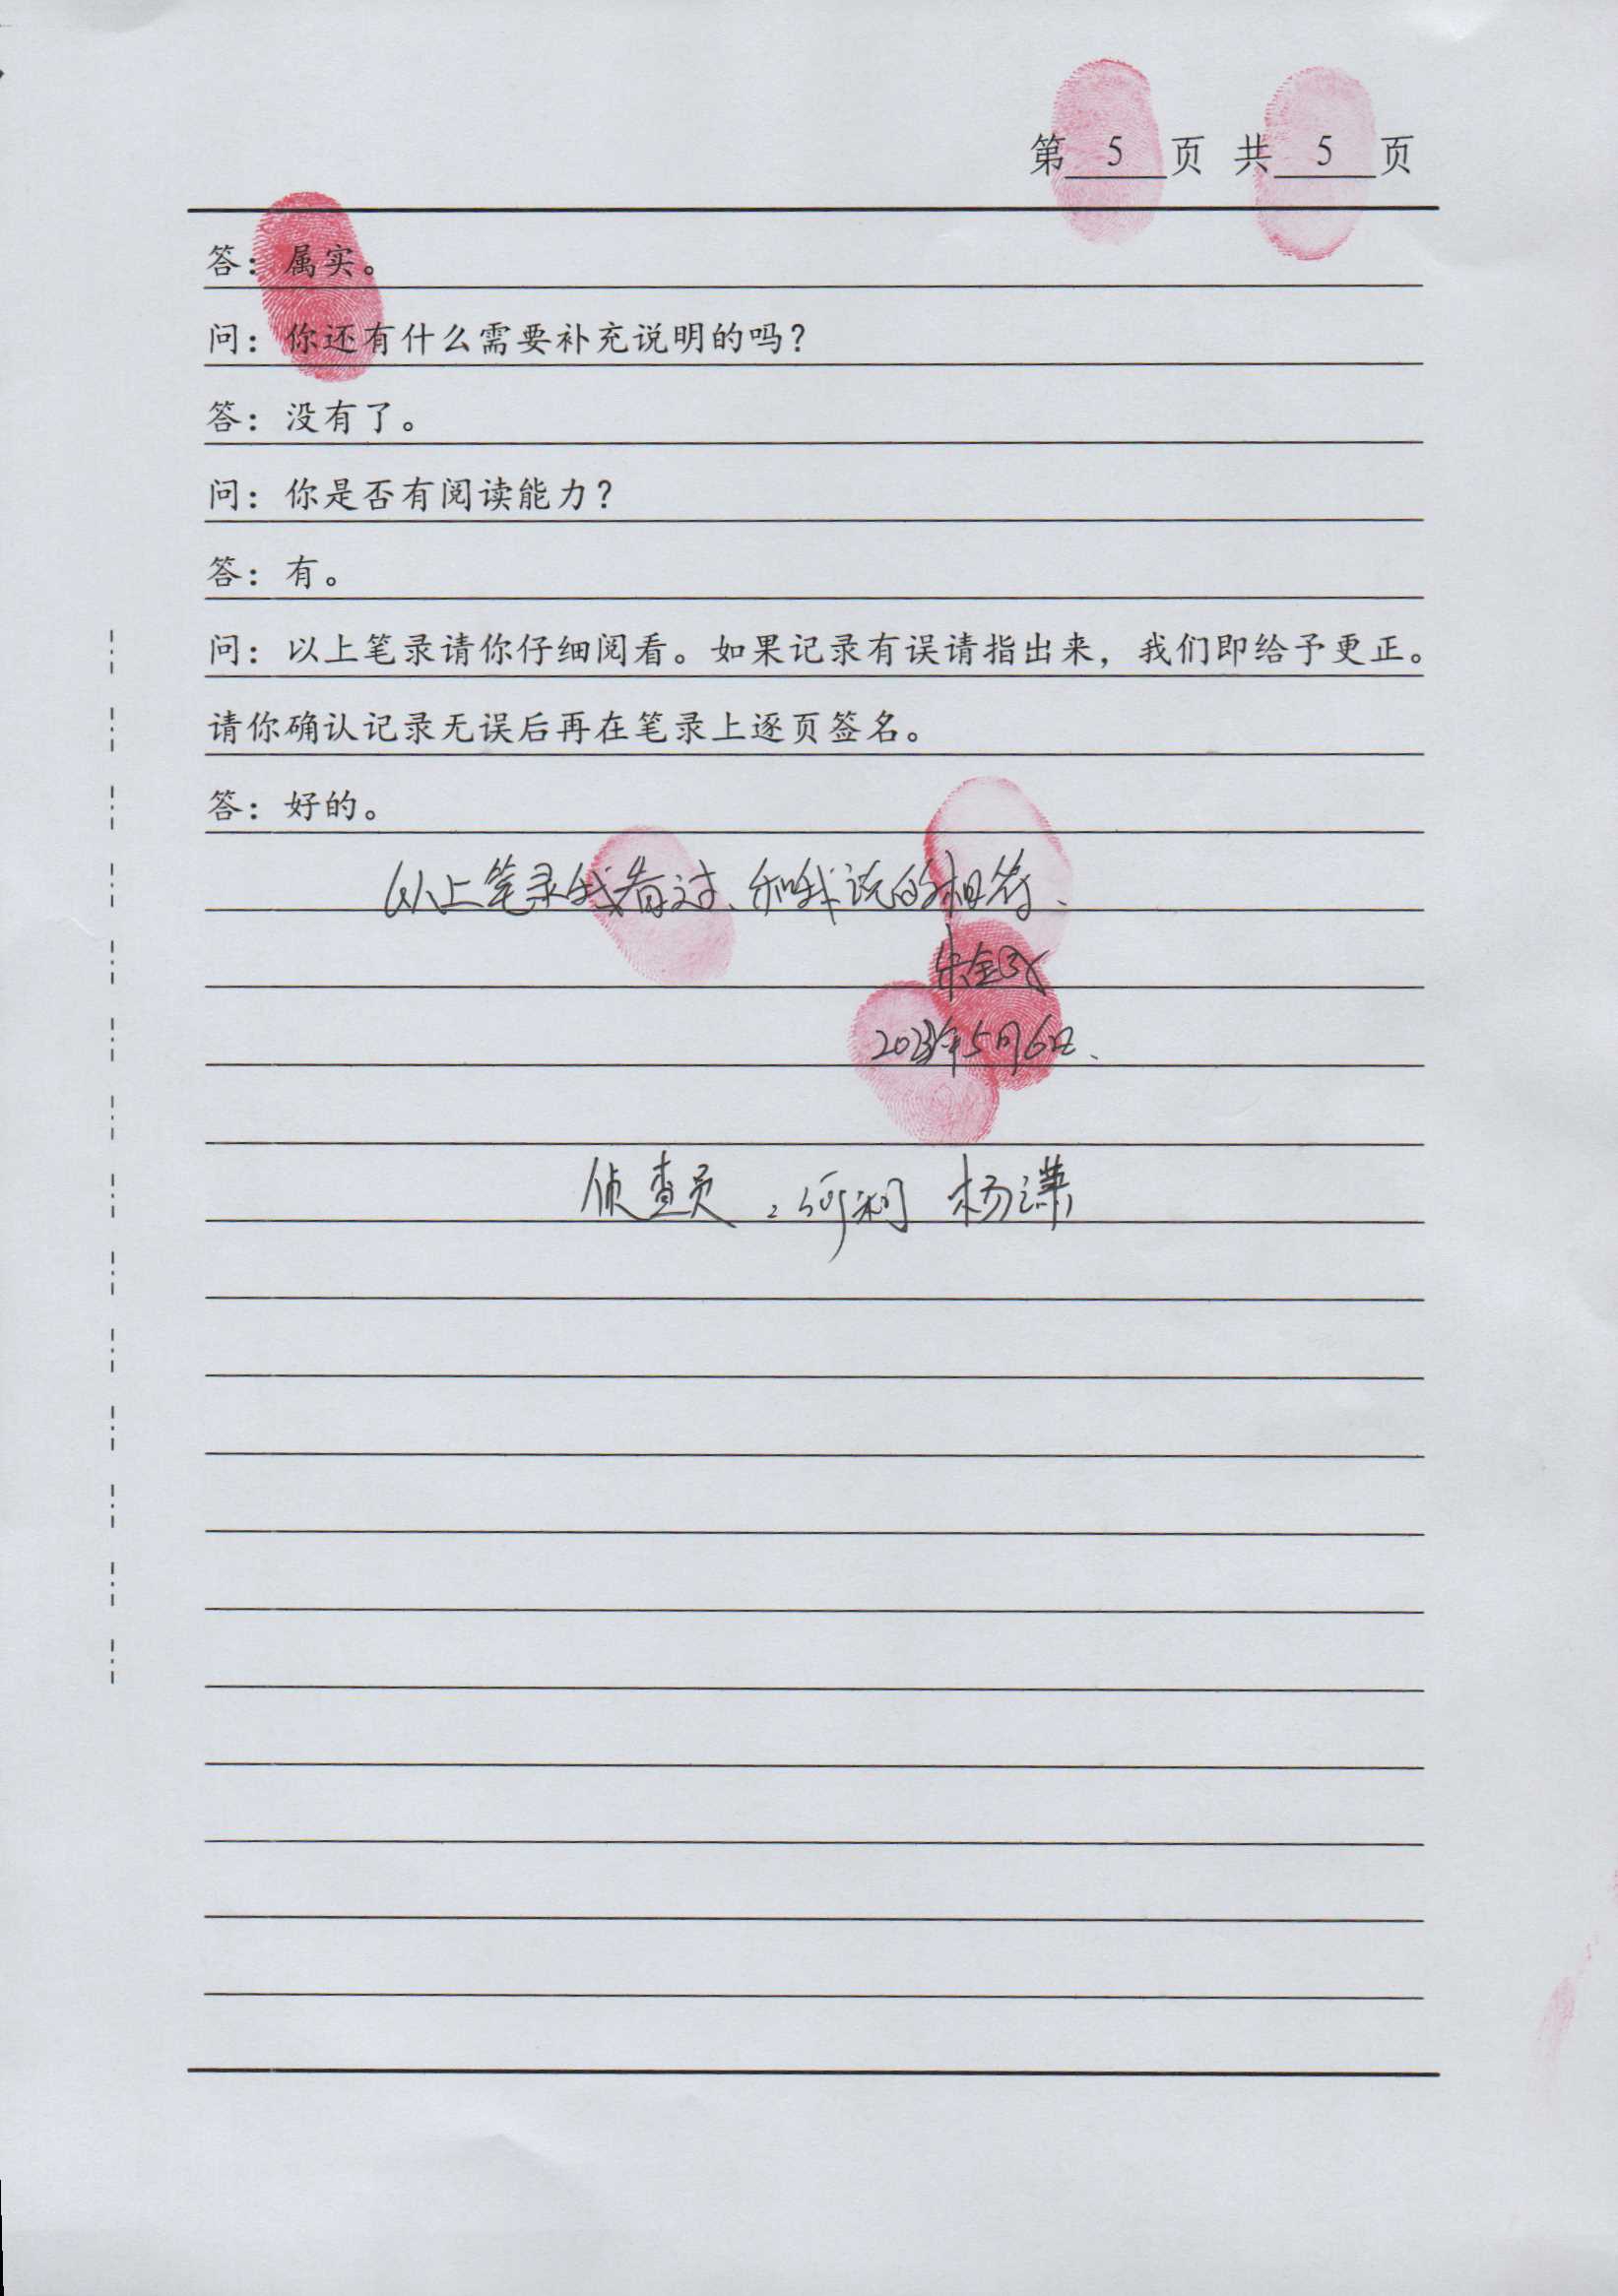 第 5 页 共 5 页
答：属实。
问：你还有什么需要补充说明的吗？
答：没有了。
问：你是否有阅读能力？
答：有。
问：以上笔录请你仔细阅看。如果记录有误请指出来，我们即给予更正。
请你确认记录无误后再在笔录上逐页签名。
答：好的。
以上笔录我看过、和我说的相符、
2023年5月6日、
侦查员：何 杨潇